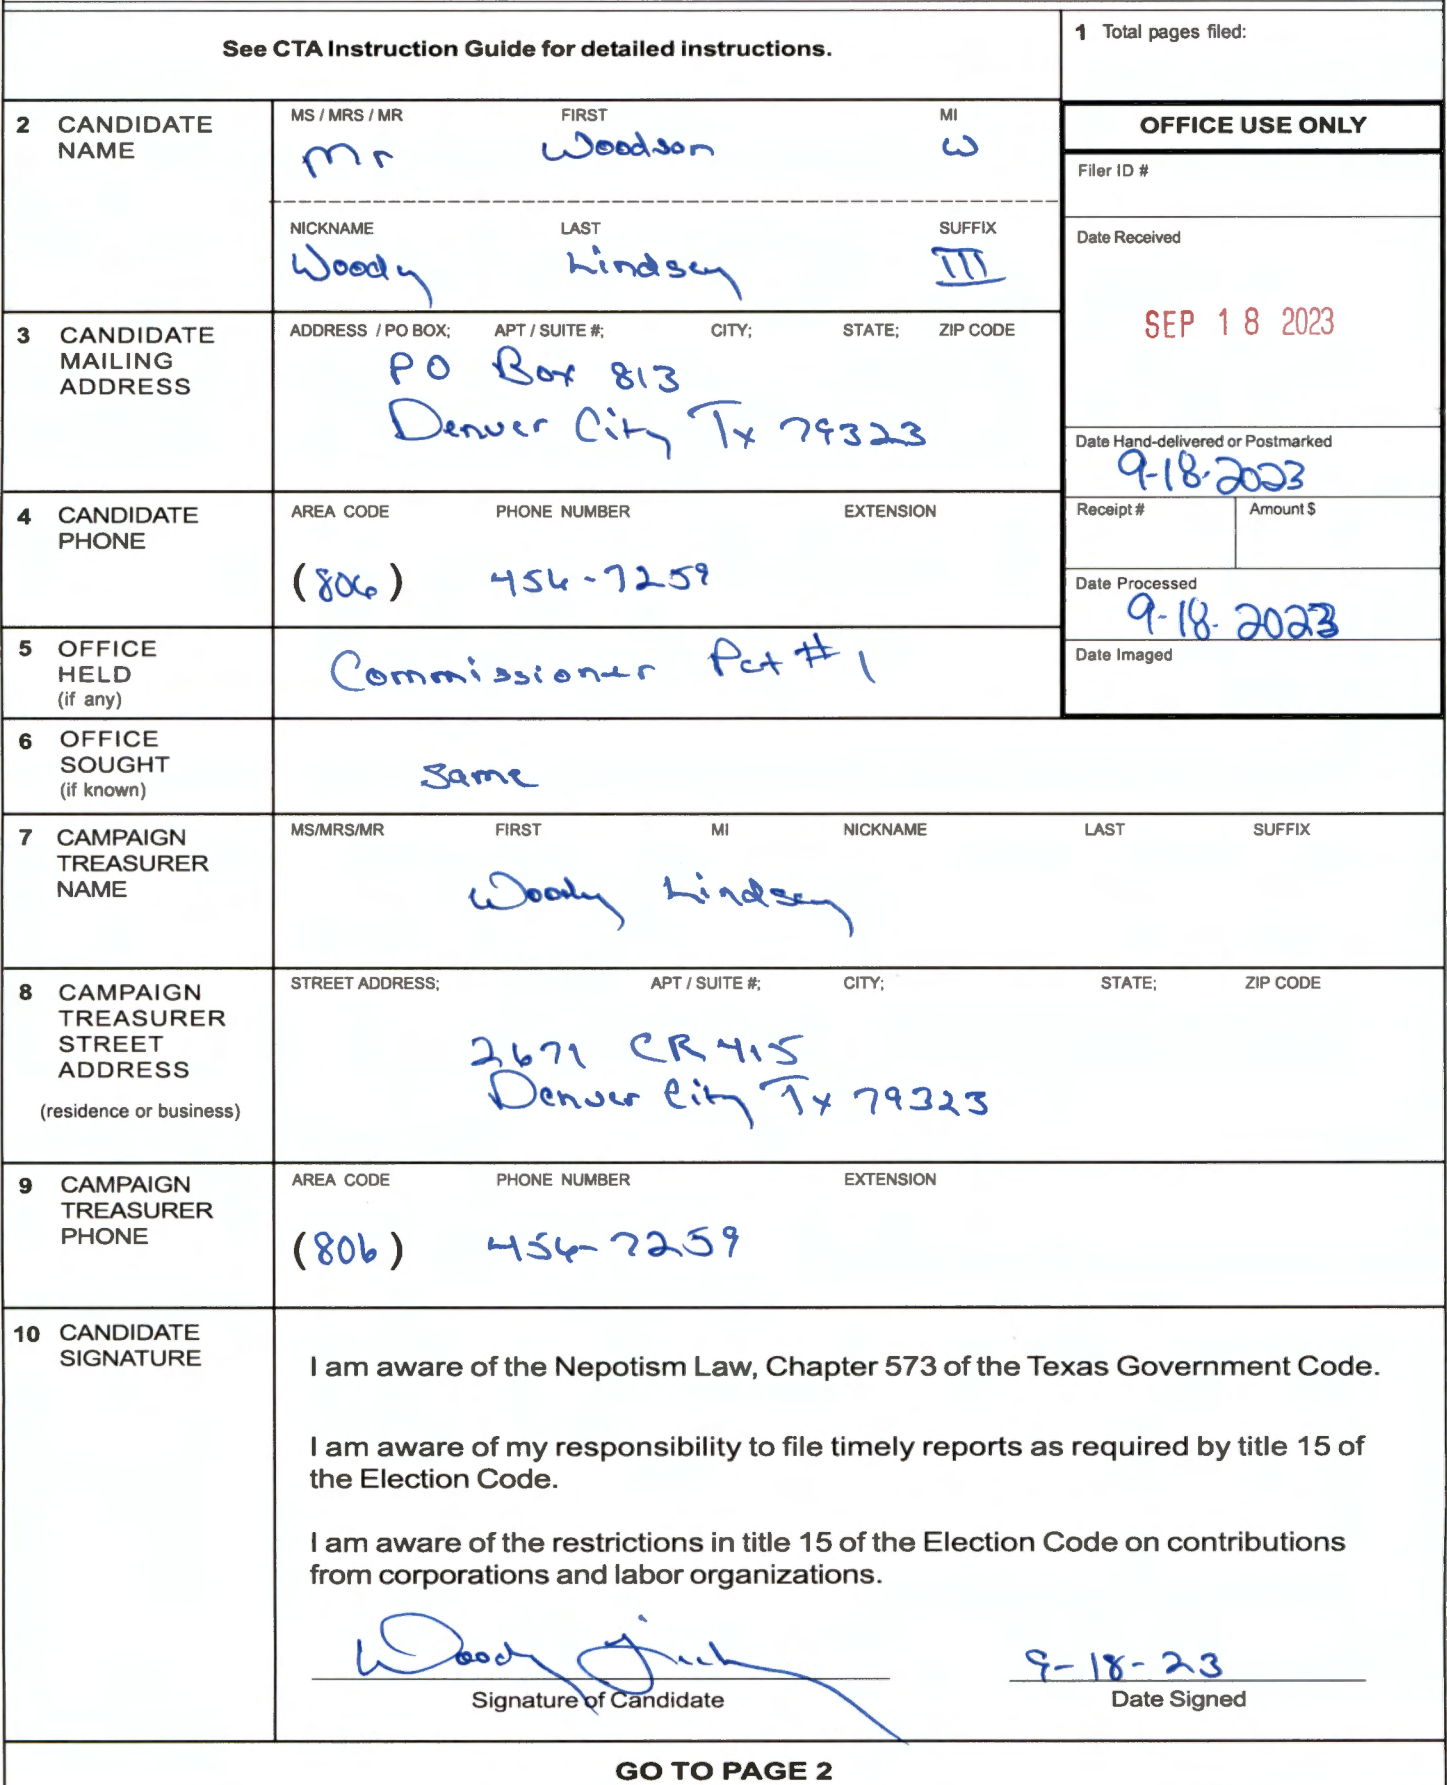 See CTA Instruction Guide for detailed instructions.
1 Total pages filed:
2 CANDIDATE NAME
MS / MRS / MR FIRST MI
Mr Woodson W
NICKNAME LAST SUFFIX
Woody Lindsey III
OFFICE USE ONLY
Filer ID #
Date Received
SEP 18 2023
Date Hand-delivered or Postmarked
9-18-2023
Receipt # Amount $
Date Processed
9-18-2023
Date Imaged
3 CANDIDATE MAILING ADDRESS
ADDRESS / PO BOX; APT / SUITE #; CITY; STATE; ZIP CODE
PO Box 813
Denver City Tx 79323
4 CANDIDATE PHONE
AREA CODE PHONE NUMBER EXTENSION
(806) 456-7259
5 OFFICE HELD (if any)
Commissioner Pct #1
6 OFFICE SOUGHT (if known)
Same
7 CAMPAIGN TREASURER NAME
MS/MRS/MR FIRST MI NICKNAME LAST SUFFIX
Woody Lindsey
8 CAMPAIGN TREASURER STREET ADDRESS (residence or business)
STREET ADDRESS; APT / SUITE #; CITY; STATE; ZIP CODE
2671 CR 415
Denver City Tx 79323
9 CAMPAIGN TREASURER PHONE
AREA CODE PHONE NUMBER EXTENSION
(806) 456-7259
10 CANDIDATE SIGNATURE
I am aware of the Nepotism Law, Chapter 573 of the Texas Government Code.
I am aware of my responsibility to file timely reports as required by title 15 of
the Election Code.
I am aware of the restrictions in title 15 of the Election Code on contributions
from corporations and labor organizations.
Woody 9-18-23
Signature of Candidate Date Signed
GO TO PAGE 2